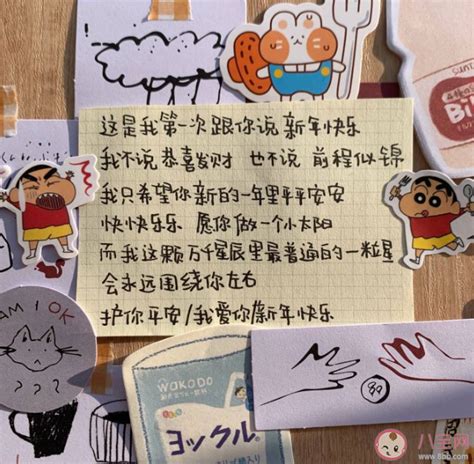 这是我第一次跟你说新年快乐
我不说恭喜发财 也不说 前程似锦
我只希望你新的一年里平平安安
快快乐乐 愿你做一个小太阳
而我这颗万千星辰里最普通的一粒星
会永远围绕你左右
护你平安/我爱你/新年快乐
AM I OK
???
WaKODO
ヨックル
Bi
八宝网
www.8bb.com